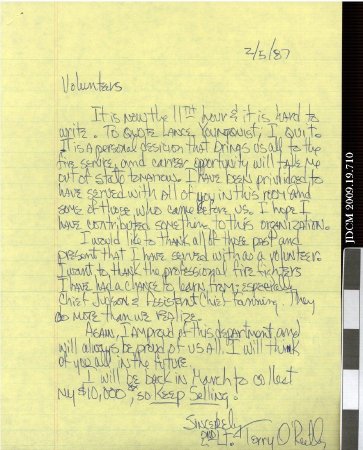 2/5/87
Volunteers
It is now the 11TH hour & it is hard to
write. To quote Lance Youngquist, I quit.
It is a personal decision that brings us all to the
fire service, and career opportunity will take me
out of state tomorrow. I have been priviledged to
have served with all of you in this room and
some of those who came before us. I hope I
have contributed something to this organization.
I would like to thank all of those past and
present that I have served with as a volunteer.
I want to thank the professional fire fighters
I have had a chance to learn from; especially
Chief Judson & Assistant Chief Fanning. They
do more than we realize.
Again, I am proud of this department and
will always be proud of us all. I will think
of you all in the future.
I will be back in March to collect
my $10,000, so keep selling.
Sincerely,
Terry O'Reilly
JDCM 2009.19.710